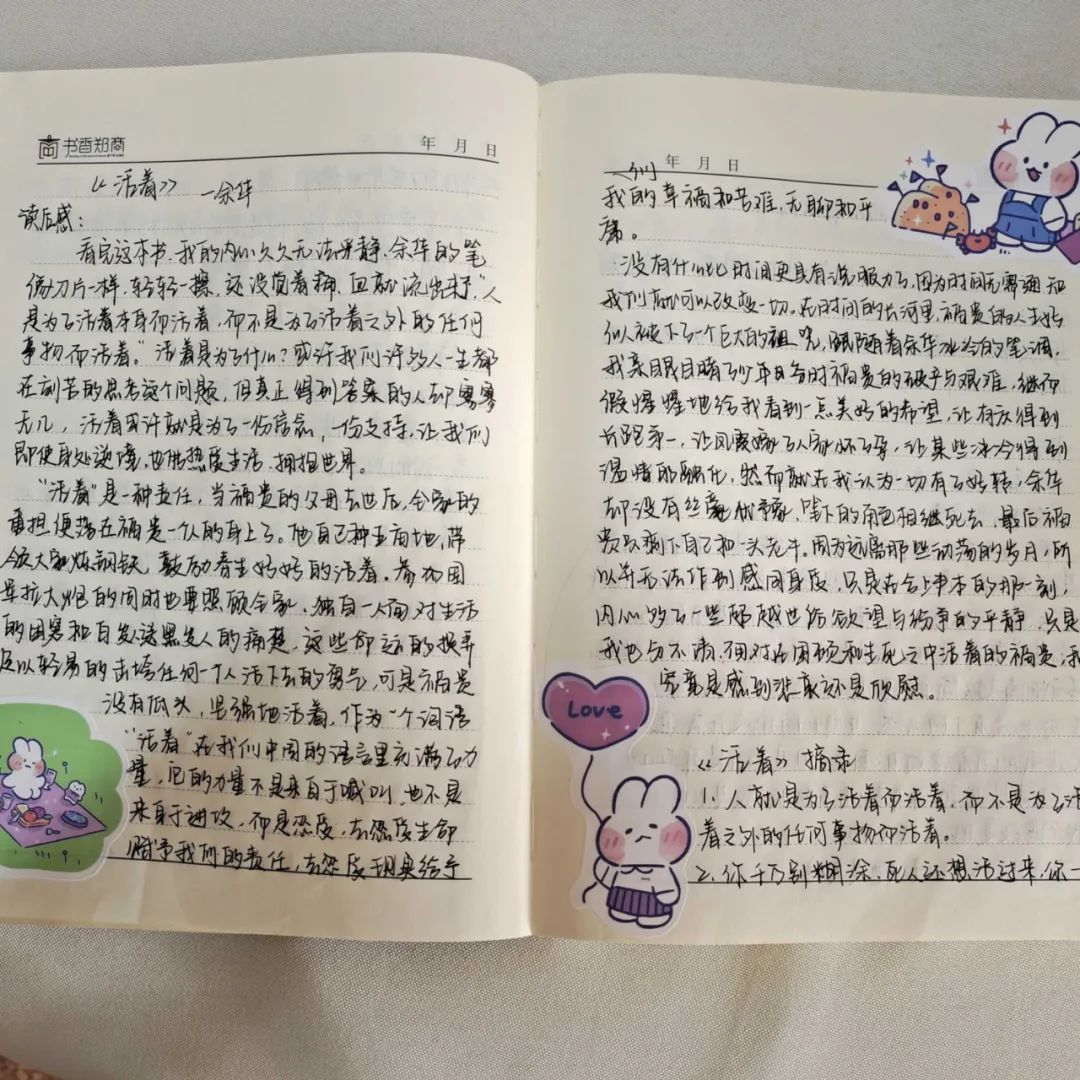 书香郑商
年 月 日
《活着》 —余华
读后感：
看完这本书，我的内心久久无法平静，余华的笔
像刀片一样，轻轻一擦，还没觉着痛，血就流出来了，“人
是为了活着本身而活着，而不是为了活着之外的任何
事物而活着。”活着是为了什么？或许我们许多人一生都
在刻苦的思考这个问题，但真正得到答案的人却寥寥
无几，活着或许就是为了一份信念，一份支持，让我们
即使身处逆境，也能热爱生活，拥抱世界。
“活着”是一种责任，当福贵的父母去世后，全家的
重担便落在福贵一人的身上了。他自己种五亩地，带
领大家炼钢铁，鼓励春生好好的活着。参加国
军拉大炮的同时也要照顾全家，独自一人面对生活
的困窘和白发送黑发人的痛楚，这些命运的捉弄
足以轻易的击垮任何一个人活下去的勇气，可是福贵
没有低头，坚强地活着，作为一个词语
“活着”在我们中国的语言里充满了力
量，它的力量不是来自于喊叫，也不是
来自于进攻，而是忍受，去忍受生命
赋予我们的责任，去忍受现实给予
年 月 日
们
我的幸福和苦难，无聊和平
庸。
没有什么比时间更具有说服力了，因为时间无需通知
我们就可以改变一切。在时间的长河里，福贵的人生好
似被下了一个巨大的诅咒，跟随着余华冰冷的笔调，
我亲眼目睹了少年日名时福贵的破产与艰难，继而
假惺惺地给我看到一点美好的希望，让有庆得到
长跑第一，让凤霞嫁了人家怀了孕，让某些冰冷得到
温情的融化，然而就在我认为一切有了好转，余华
却没有丝毫优犹豫，笔下的角色相继死去，最后福
贵只剩下自己和一头老牛。因为远离那些动荡的岁月，所
以并无法作到感同身受，只是在合上书本的那一刻，
内心多了一些超越世俗欲望与纷争的平静，只是
我也分不清，面对在困顿和生死之中活着的福贵，我
究竟是感到悲哀还是欣慰。
Love
《活着》摘录
1. 人就是为了活着而活着，而不是为了活
着之外的任何事物而活着。
2. 你千万别糊涂，死人还想活过来，你一